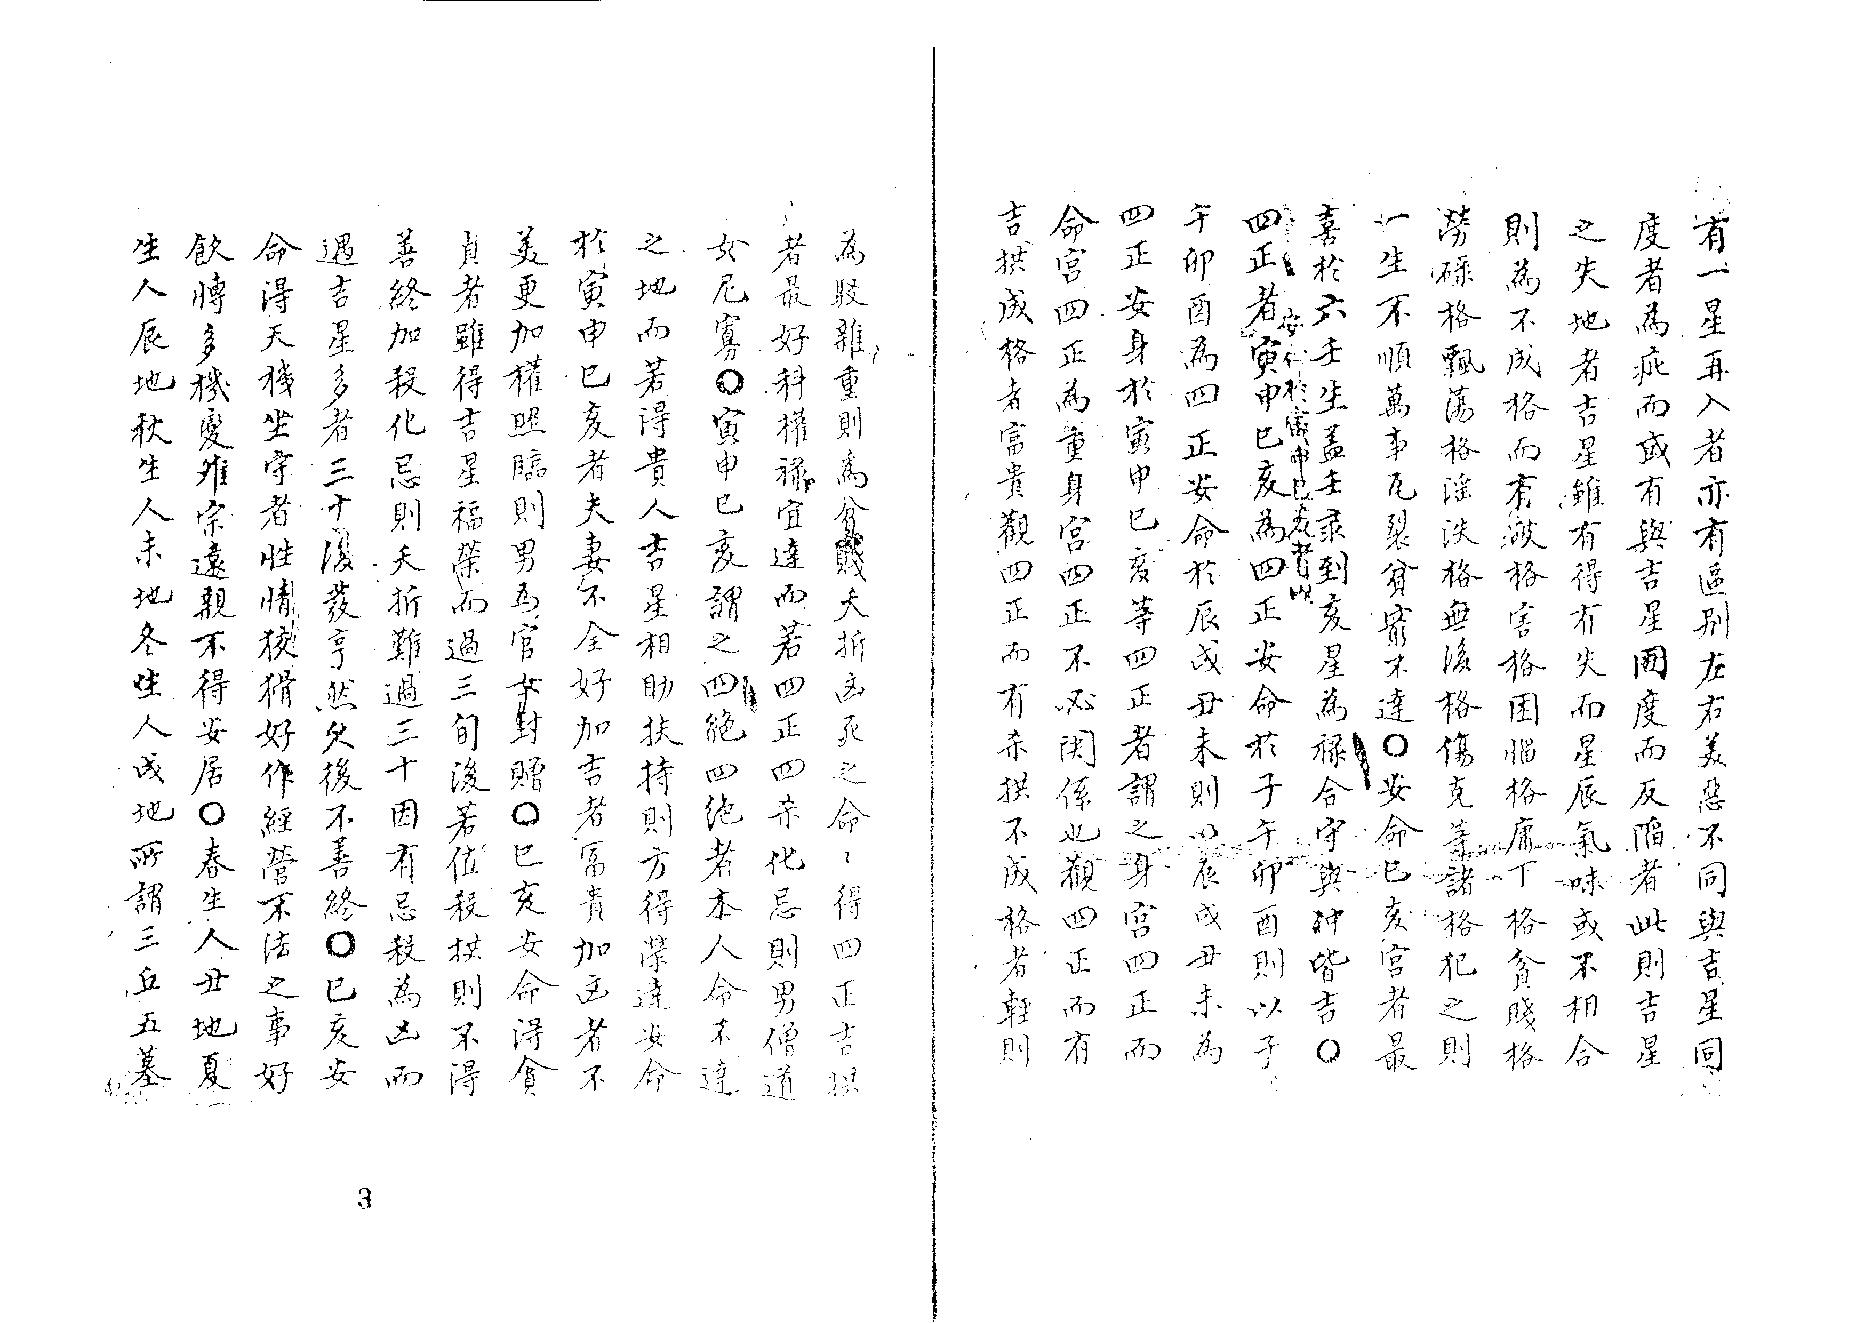 有一星再入者亦有區別左右美惡不同與吉星同
度者為疵而或有與吉星同度而反陷者此則吉星
之失地者吉星雖有得有失而星辰氣味或不相合
則為不成格而有破格害格困惱格庸下格貧賤格
勞碌格飄蕩格淫泆格無後格傷克等諸格犯之則
一生不順萬事瓦裂貧窮不達○安命巳亥宮者最
喜於六壬生盖壬彔到亥星為祿合守與沖皆吉○
四正者寅申巳亥為四正安命於子午卯酉則以子
安命於寅申巳亥者以
午卯酉為四正安命於辰戌丑未則以辰戌丑未為
四正安身於寅申巳亥等四正者謂之身宮四正而
命宮四正為重身宮四正不必関係也觀四正而有
吉拱成格者富貴觀四正而有杀拱不成格者輕則
為駁雜重則為貧賤夭折凶死之命〻得四正吉拱
者最好科權祿宜達而若四正四杀化忌則男僧道
女尼寡○寅申巳亥謂之四絕四絕者本人命不達
之地而若得貴人吉星相助扶持則方得榮達安命
於寅申巳亥者夫妻不全好加吉者富貴加凶者不
美更加權照臨則男為官女封贈○巳亥安命得貪
貞者雖得吉星福榮而過三旬後若值殺拱則不得
善終加殺化忌則夭折難過三十因有忌殺為凶而
遇吉星多者三十後發亨然欠後不善終○巳亥安
命得天機坐守者性情狡猾好作經營不法之事好
飲博多機變雖宗遠親不得安居○春生人丑地夏
生人辰地秋生人未地冬生人戌地所謂三丘五墓
3